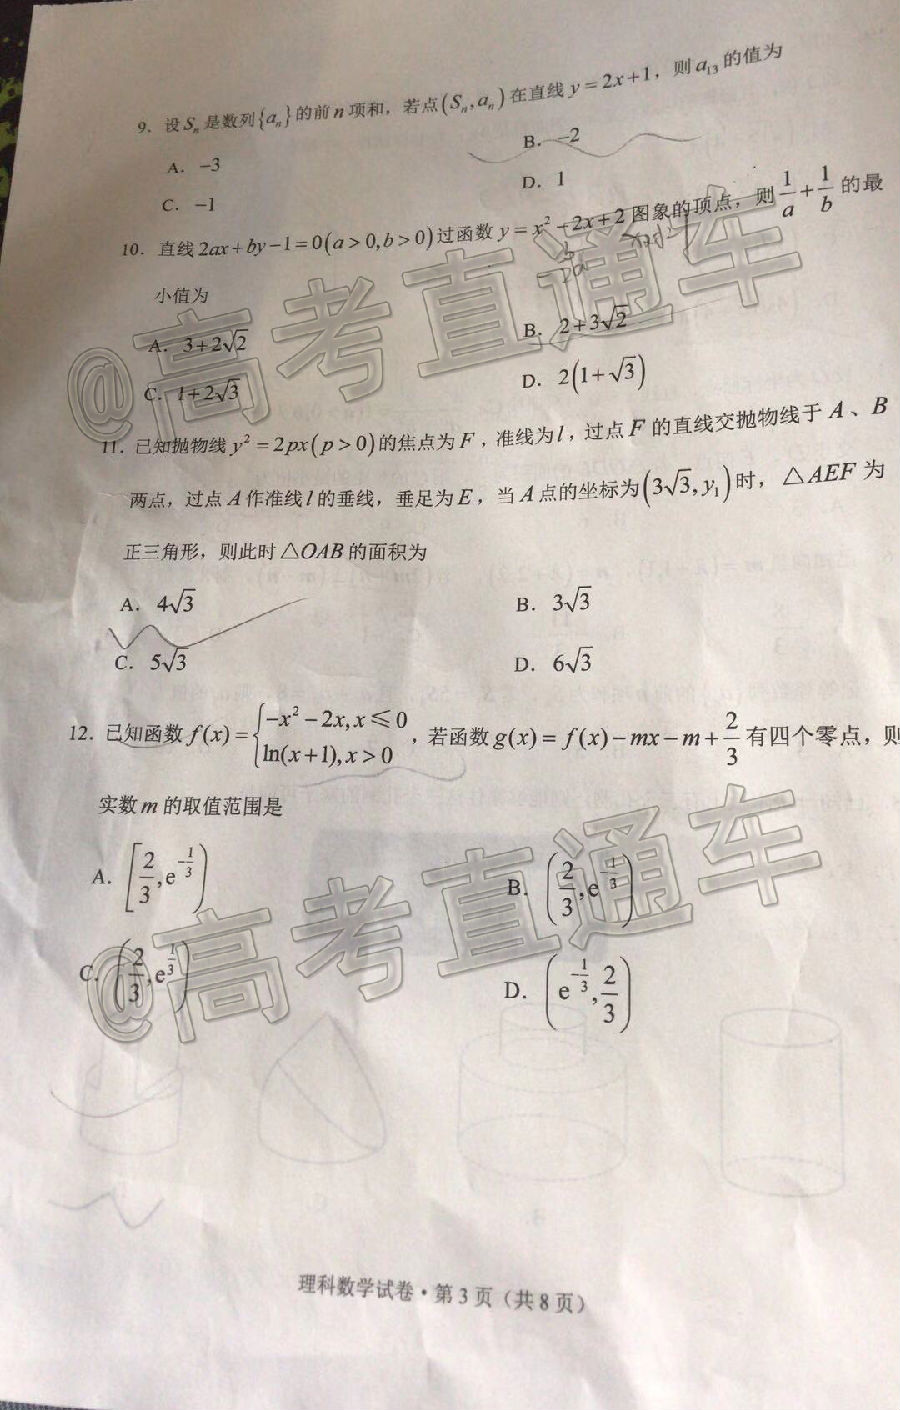 9. 设 Sₙ 是数列{aₙ}的前 n 项和，若点(Sₙ,aₙ)在直线 y=2x+1，则 a₁₃ 的值为
A. −3
B. −2
C. −1
D. 1
10. 直线 2ax+by−1=0(a>0,b>0)过函数 y=x²−2x+2 图象的顶点，则 1/a+1/b 的最
小值为
A. 3+2√2
B. 2+3√2
C. 1+2√3
D. 2(1+√3)
11. 已知抛物线 y²=2px(p>0)的焦点为 F，准线为 l，过点 F 的直线交抛物线于 A、B
两点，过点 A 作准线 l 的垂线，垂足为 E，当 A 点的坐标为(3√3,y₁)时，△AEF 为
正三角形，则此时△OAB 的面积为
A. 4√3
B. 3√3
C. 5√3
D. 6√3
12. 已知函数 f(x)={−x²−2x,x≤0
ln(x+1),x>0，若函数 g(x)=f(x)−mx−m+2/3 有四个零点，则
实数 m 的取值范围是
A. [2/3,e^(−1/3))
B. (2/3,e^(−1/3))
C. (2/3,e^(1/3))
D. (e^(−1/3),2/3)
@高考直通车
@高考直通车
理科数学试卷·第 3 页（共 8 页）